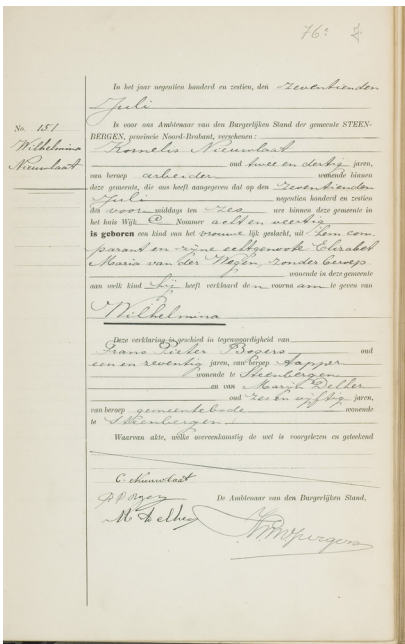 76
In het jaar negentien honderd en zestien, den zeventienden
Juli
Is voor ons Ambtenaar van den Burgerlijken Stand der gemeente STEEN-
BERGEN, provincie Noord-Brabant, verschenen:
No. 151
Wilhelmina
Nieuwlaat
Kornelis Nieuwlaat
oud twee en dertig jaren,
van beroep arbeider wonende binnen
deze gemeente, die ons heeft aangegeven dat op den zeventienden
Juli negentien honderd en zestien
des voor middags ten zes ure binnen deze gemeente in
het huis Wijk C Nummer acht en veertig
is geboren een kind van het vrouwe lijk geslacht, uit hem com-
parant en zijne echtgenoote Elizabet
Maria van der Wegen, zonder beroep
wonende in deze gemeente
aan welk kind hij heeft verklaard de n voorna am te geven van
Wilhelmina
Deze verklaring is geschied in tegenwoordigheid van
Frans Pieter Bogers oud
een en zeventig jaren, van beroep tapper
wonende te Steenbergen
en van Marijn Delher
oud zes en vijftig jaren,
van beroep gemeentebode wonende
te Steenbergen.
Waarvan akte, welke overeenkomstig de wet is voorgelezen en geteekend
C. Nieuwlaat
De Ambtenaar van den Burgerlijken Stand,
M Delher